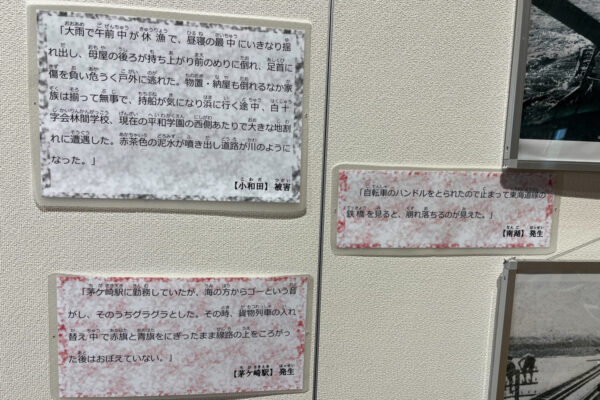 「大雨で午前中が休漁で、昼寝の最中にいきなり揺
れ出し、母屋の後ろが持ち上がり前のめりに倒れ、足首に
傷を負い危うく戸外に逃れた。物置・納屋も倒れるなか家
族は揃って無事で、持船が気になり浜に行く途中、白十
字会林間学校、現在の平和学園の西側あたりで大きな地割
れに遭遇した。赤茶色の泥水が噴き出し道路が川のように
なった。」
【小和田】 被害
「自転車のハンドルをとられたので止まって東海道線の
鉄橋を見ると、崩れ落ちるのが見えた。」
【南湖】 発生
「茅ケ崎駅に勤務していたが、海の方からゴーという音
がし、そのうちグラグラとした。その時、貨物列車の入れ
替え中で赤旗と青旗をにぎったまま線路の上をころがっ
た後はおぼえていない。」
【茅ケ崎駅】 発生